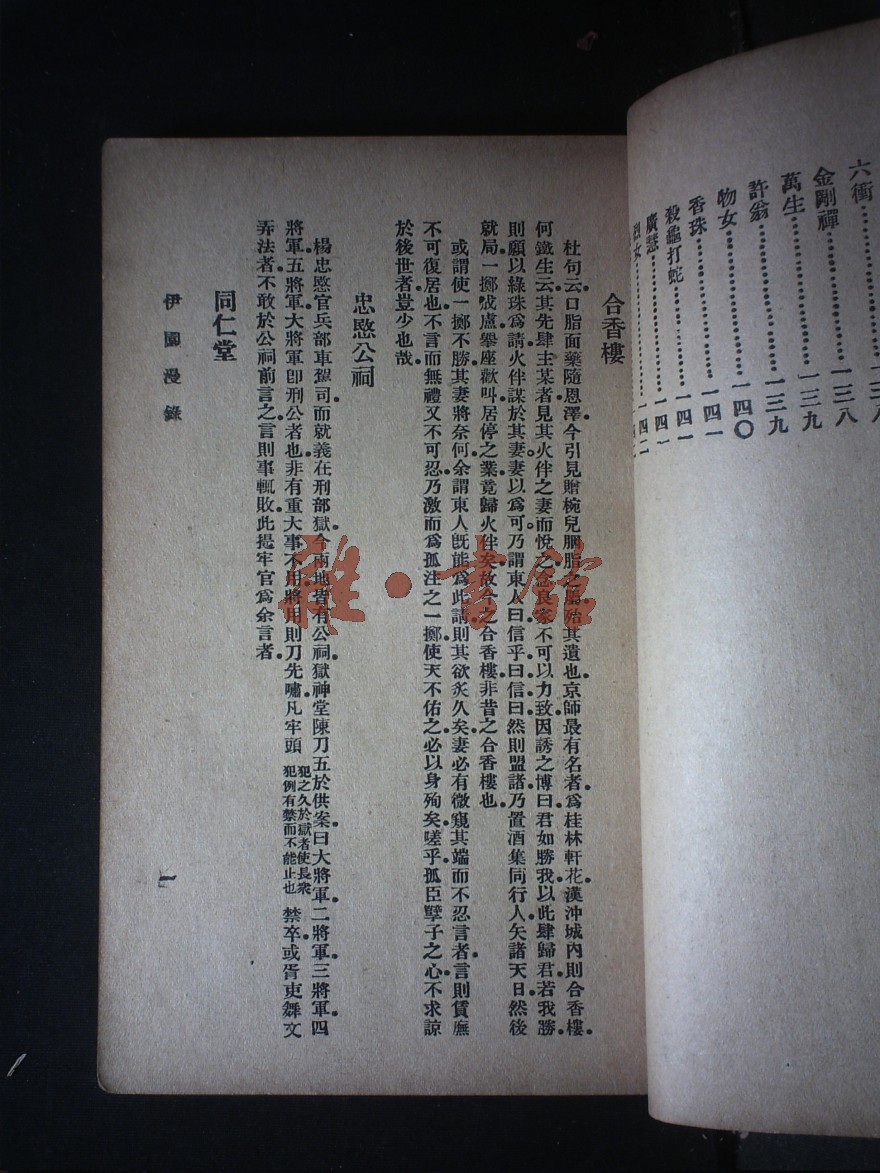 六衝⋯⋯⋯⋯一三八
金剛禪⋯⋯⋯⋯一三八
萬生⋯⋯⋯⋯一三九
許翁⋯⋯⋯⋯一三九
物女⋯⋯⋯⋯一四〇
香珠⋯⋯⋯⋯一四一
殺龜打蛇⋯⋯⋯⋯一四一
廣慧⋯⋯⋯⋯一四二
烈女⋯⋯⋯⋯一四二
合香樓
杜句云口脂面藥隨恩澤今引見贈椀兒胭脂之屬殆其遺也京師最有名者爲桂林軒花漢沖城內則合香樓
何鐵生云其先肆主某者見其火伴之妻而悅之念良家不可以力致因誘之博曰君如勝我以此肆歸君若我勝
則願以綠珠爲請火伴謀於其妻妻以爲可乃謂東人曰信乎曰信曰然則盟諸乃置酒集同行人矢諸天日然後
就局一擲成盧舉座歡叫居停之業竟歸火伴矣故今之合香樓非昔之合香樓也
或謂使一擲不勝其妻將奈何余謂東人既能爲此請則其欲炙久矣妻必有微窺其端而不忍言者言則賃廡
不可復居也不言而無禮又不可忍乃激而爲孤注之一擲使天不佑之必以身殉矣嗟乎孤臣孽子之心不求諒
於後世者豈少也哉
忠愍公祠
楊忠愍官兵部車駕司而就義在刑部獄今兩地皆有公祠獄神堂陳刀五於供案曰大將軍二將軍三將軍四
將軍五將軍大將軍卽刑公者也非有重大事不用將用則刀先嘯凡牢頭犯之久於獄者使長衆犯例有禁而不能止也禁卒或胥吏舞文
弄法者不敢於公祠前言之言則事輒敗此提牢官爲余言者
同仁堂
伊園漫錄
一
雅·書館